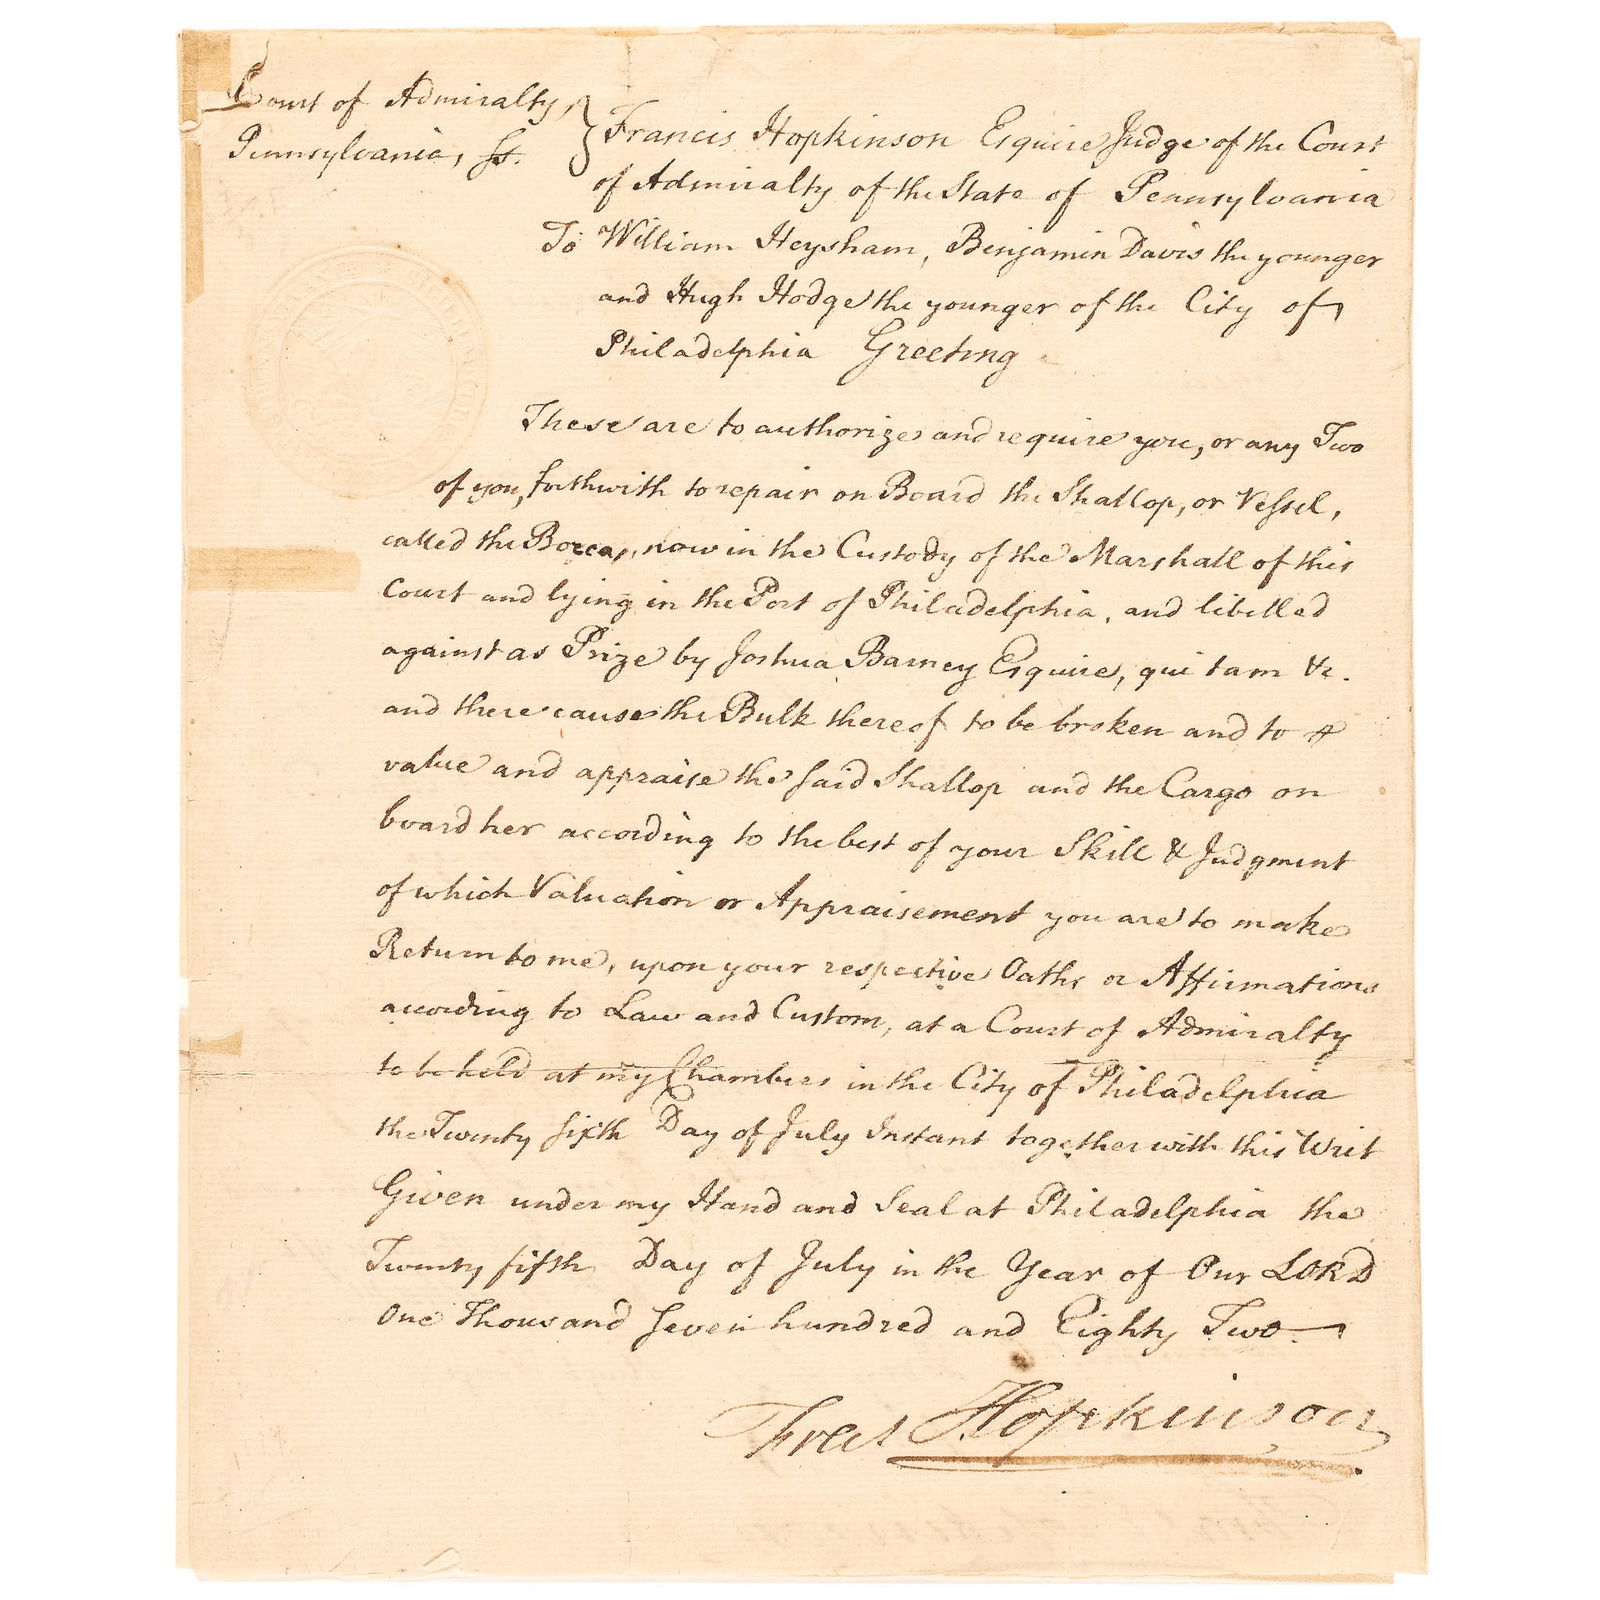 Court of Admiralty
Pennsylvania, ss.
Francis Hopkinson Esquire Judge of the Court
of Admiralty of the State of Pennsylvania
To William Heysham, Benjamin Davis the younger
and Hugh Hodge the younger of the City of
Philadelphia Greeting
These are to authorize and require you, or any Two
of you, forthwith to repair on Board the Shallop, or Vessel,
called the now in the Custody of the Marshall of this
Court and lying in the Port of Philadelphia, and libelled
against as Prize by Joshua Barney Esquire, qui tam &c.
and there cause the Bulk thereof to be broken and to
value and appraise the said Shallop and the Cargo on
board her according to the best of your Skill & Judgment
of which Valuation or Appraisement you are to make
Return to me, upon your respective Oaths or Affirmations
according to Law and Custom, at a Court of Admiralty
to be held at my Chambers in the City of Philadelphia
the Twenty sixth Day of July Instant together with this Writ
Given under my Hand and Seal at Philadelphia the
Twenty fifth Day of July in the Year of Our LORD
One Thousand seven hundred and Eighty Two
Fras Hopkinson